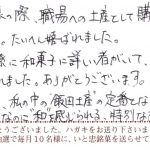 の際、職場への土産として購
たいへん喜ばれました。
に和菓子に詳しい者がいて、
れました。ありがとうございます。
私の中の"飯田土産"の定番とな
なのに"和"感じられる、特別な
とうございました。ハガキをお送り下さいま
抽選で毎月10名様に、いと忠銘菓を送らせて